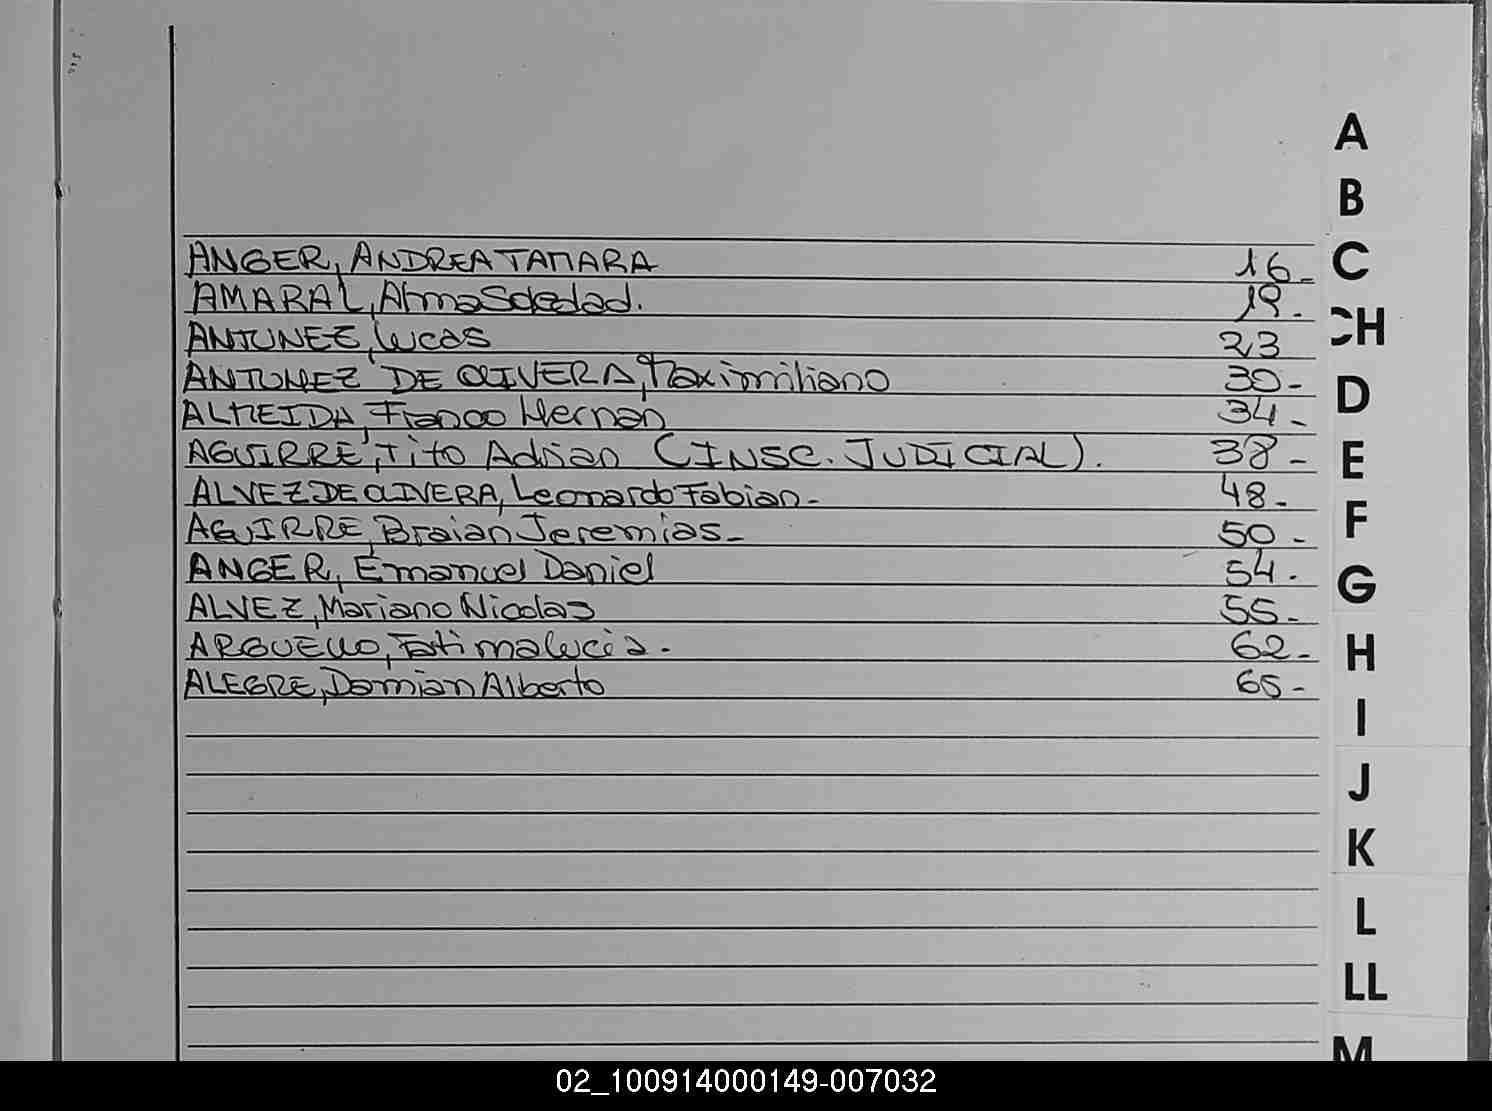 ANGER, ANDREA TAMARA 16-
AMARAL, Alma Soledad. 19.
ANTUNEZ, Lucas 23
ANTUNEZ DE OLIVERA, Maximiliano 30-
ALMEIDA, Franco Hernan 34-
AGUIRRE, Tito Adrian (INSC. JUDICIAL). 38-
ALVEZ DE OLIVERA, Leonardo Fabian- 48-
AGUIRRE, Braian Jeremias- 50-
ANGER, Emanuel Daniel 54.
ALVEZ, Mariano Nicolas 55-
ARGUELLO, Fatima Lucia. 62-
ALEGRE, Damian Alberto 65-
A
B
C
CH
D
E
F
G
H
I
J
K
L
LL
M
02_100914000149-007032